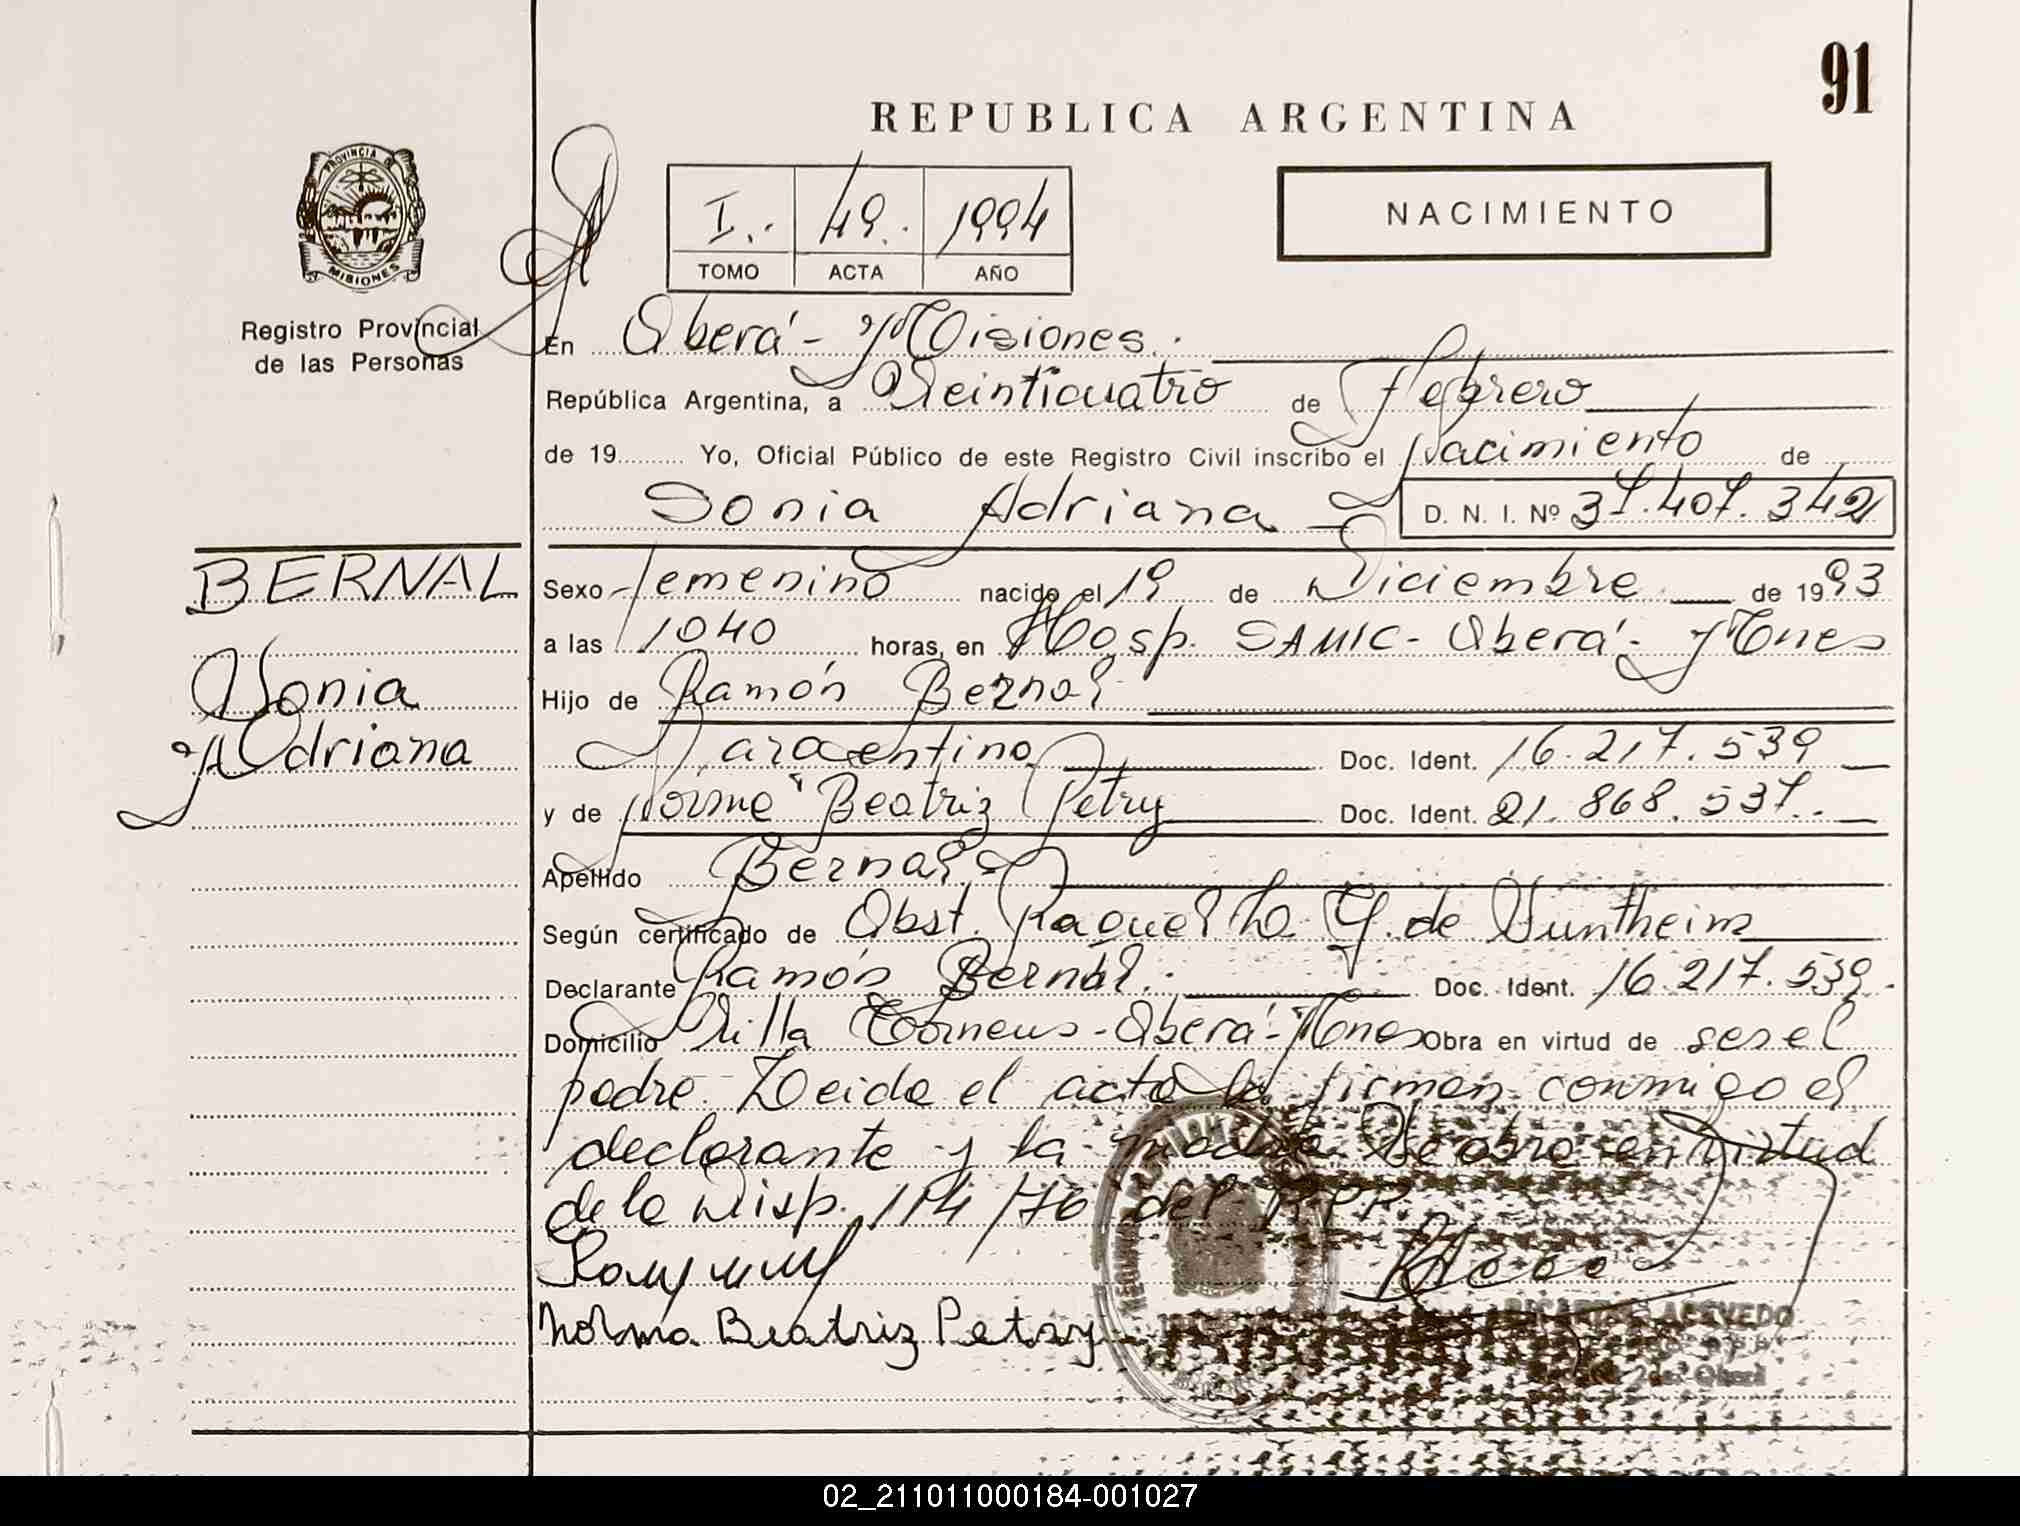 91
REPUBLICA ARGENTINA
PROVINCIA DE
MISIONES
Registro Provincial
de las Personas
I. 49. 1994
TOMO ACTA AÑO
NACIMIENTO
En Oberá - Misiones.
República Argentina, a Veinticuatro de Febrero
de 19......... Yo, Oficial Público de este Registro Civil inscribo el Nacimiento de
Sonia Adriana D. N. I. Nº 37.407.342
BERNAL
Sonia
Adriana
Sexo femenino nacido el 19 de Diciembre de 1993
a las 1040 horas, en Hosp. SAMIC - Oberá - Mnes
Hijo de Ramón Bernal
argentino Doc. Ident. 16.217.539
y de Norma Beatriz Petry Doc. Ident. 21.868.537.
Apellido Bernal
Según certificado de Obst. Raquel L. G. de Suntheim
Declarante Ramón Bernal. Doc. Ident. 16.217.539.
Domicilio Villa Torneus - Oberá - Mnes Obra en virtud de ser el
padre. Leida el acta la firman conmigo el
declarante y la madre. Se obra en virtud
de la Disp. 114/76 del R.P.P.
Norma Beatriz Petry
RICARDO ACEVEDO
02_211011000184-001027